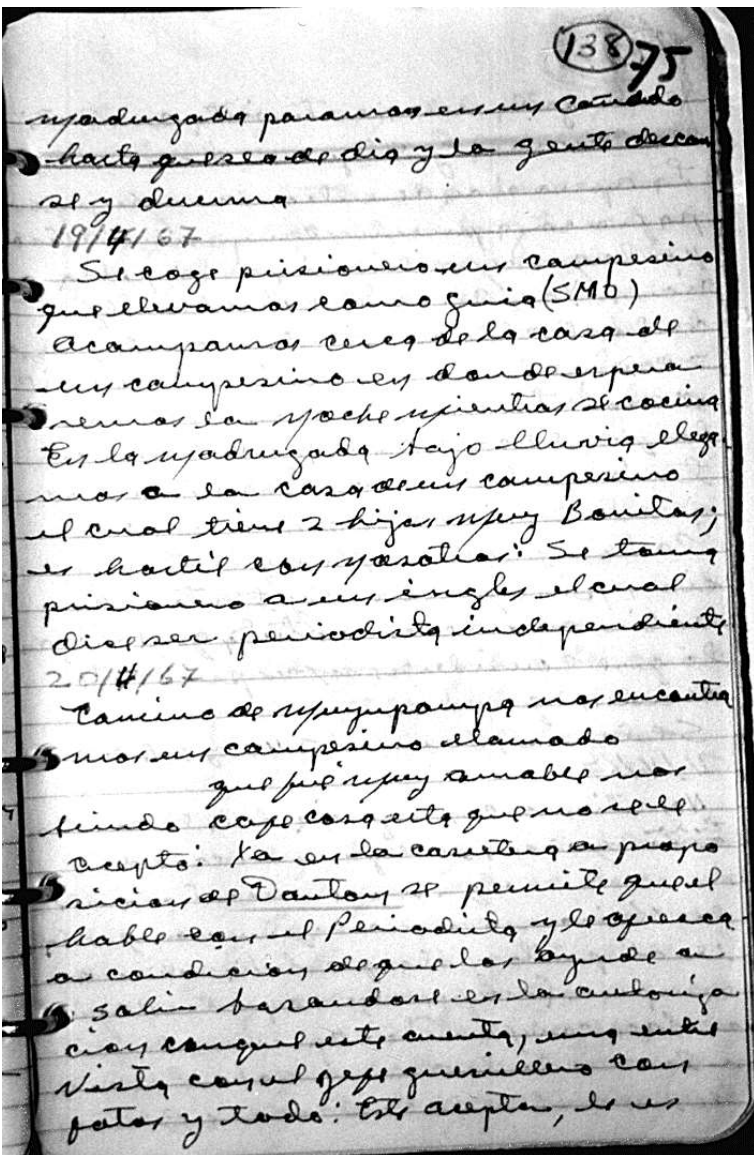 138 75
madrugada paramos en un cañado
hasta que sea de dia y la gente descan
se y duerma
19/4/67
Se coge prisionero un campesino
que llevamos como guia (SMO)
Acampamos cerca de la casa de
un campesino en donde espera
remos la noche mientras se cocina
En la madrugada bajo lluvia llega
mos a la casa de un campesino
el cual tiene 2 hijas muy Bonitas;
es hostil con nosotros: Se toma
prisionero a un ingles el cual
dise ser periodista independiente
20/4/67
Camino de Muyupampa nos encontra
mos un campesino llamado
que fue muy amable nos
brindo cafe cosa esta que no se le
acepto: Ya en la carretera a propo
sicion de Danton se permite que el
hable con el Periodista y le ofresca
a condicion de que los ayude a
salir basandose en la autoriza
cion conque este cuenta, una entre
vista con el jefe guerrillero con
fotos y todo: Este acepta, le es